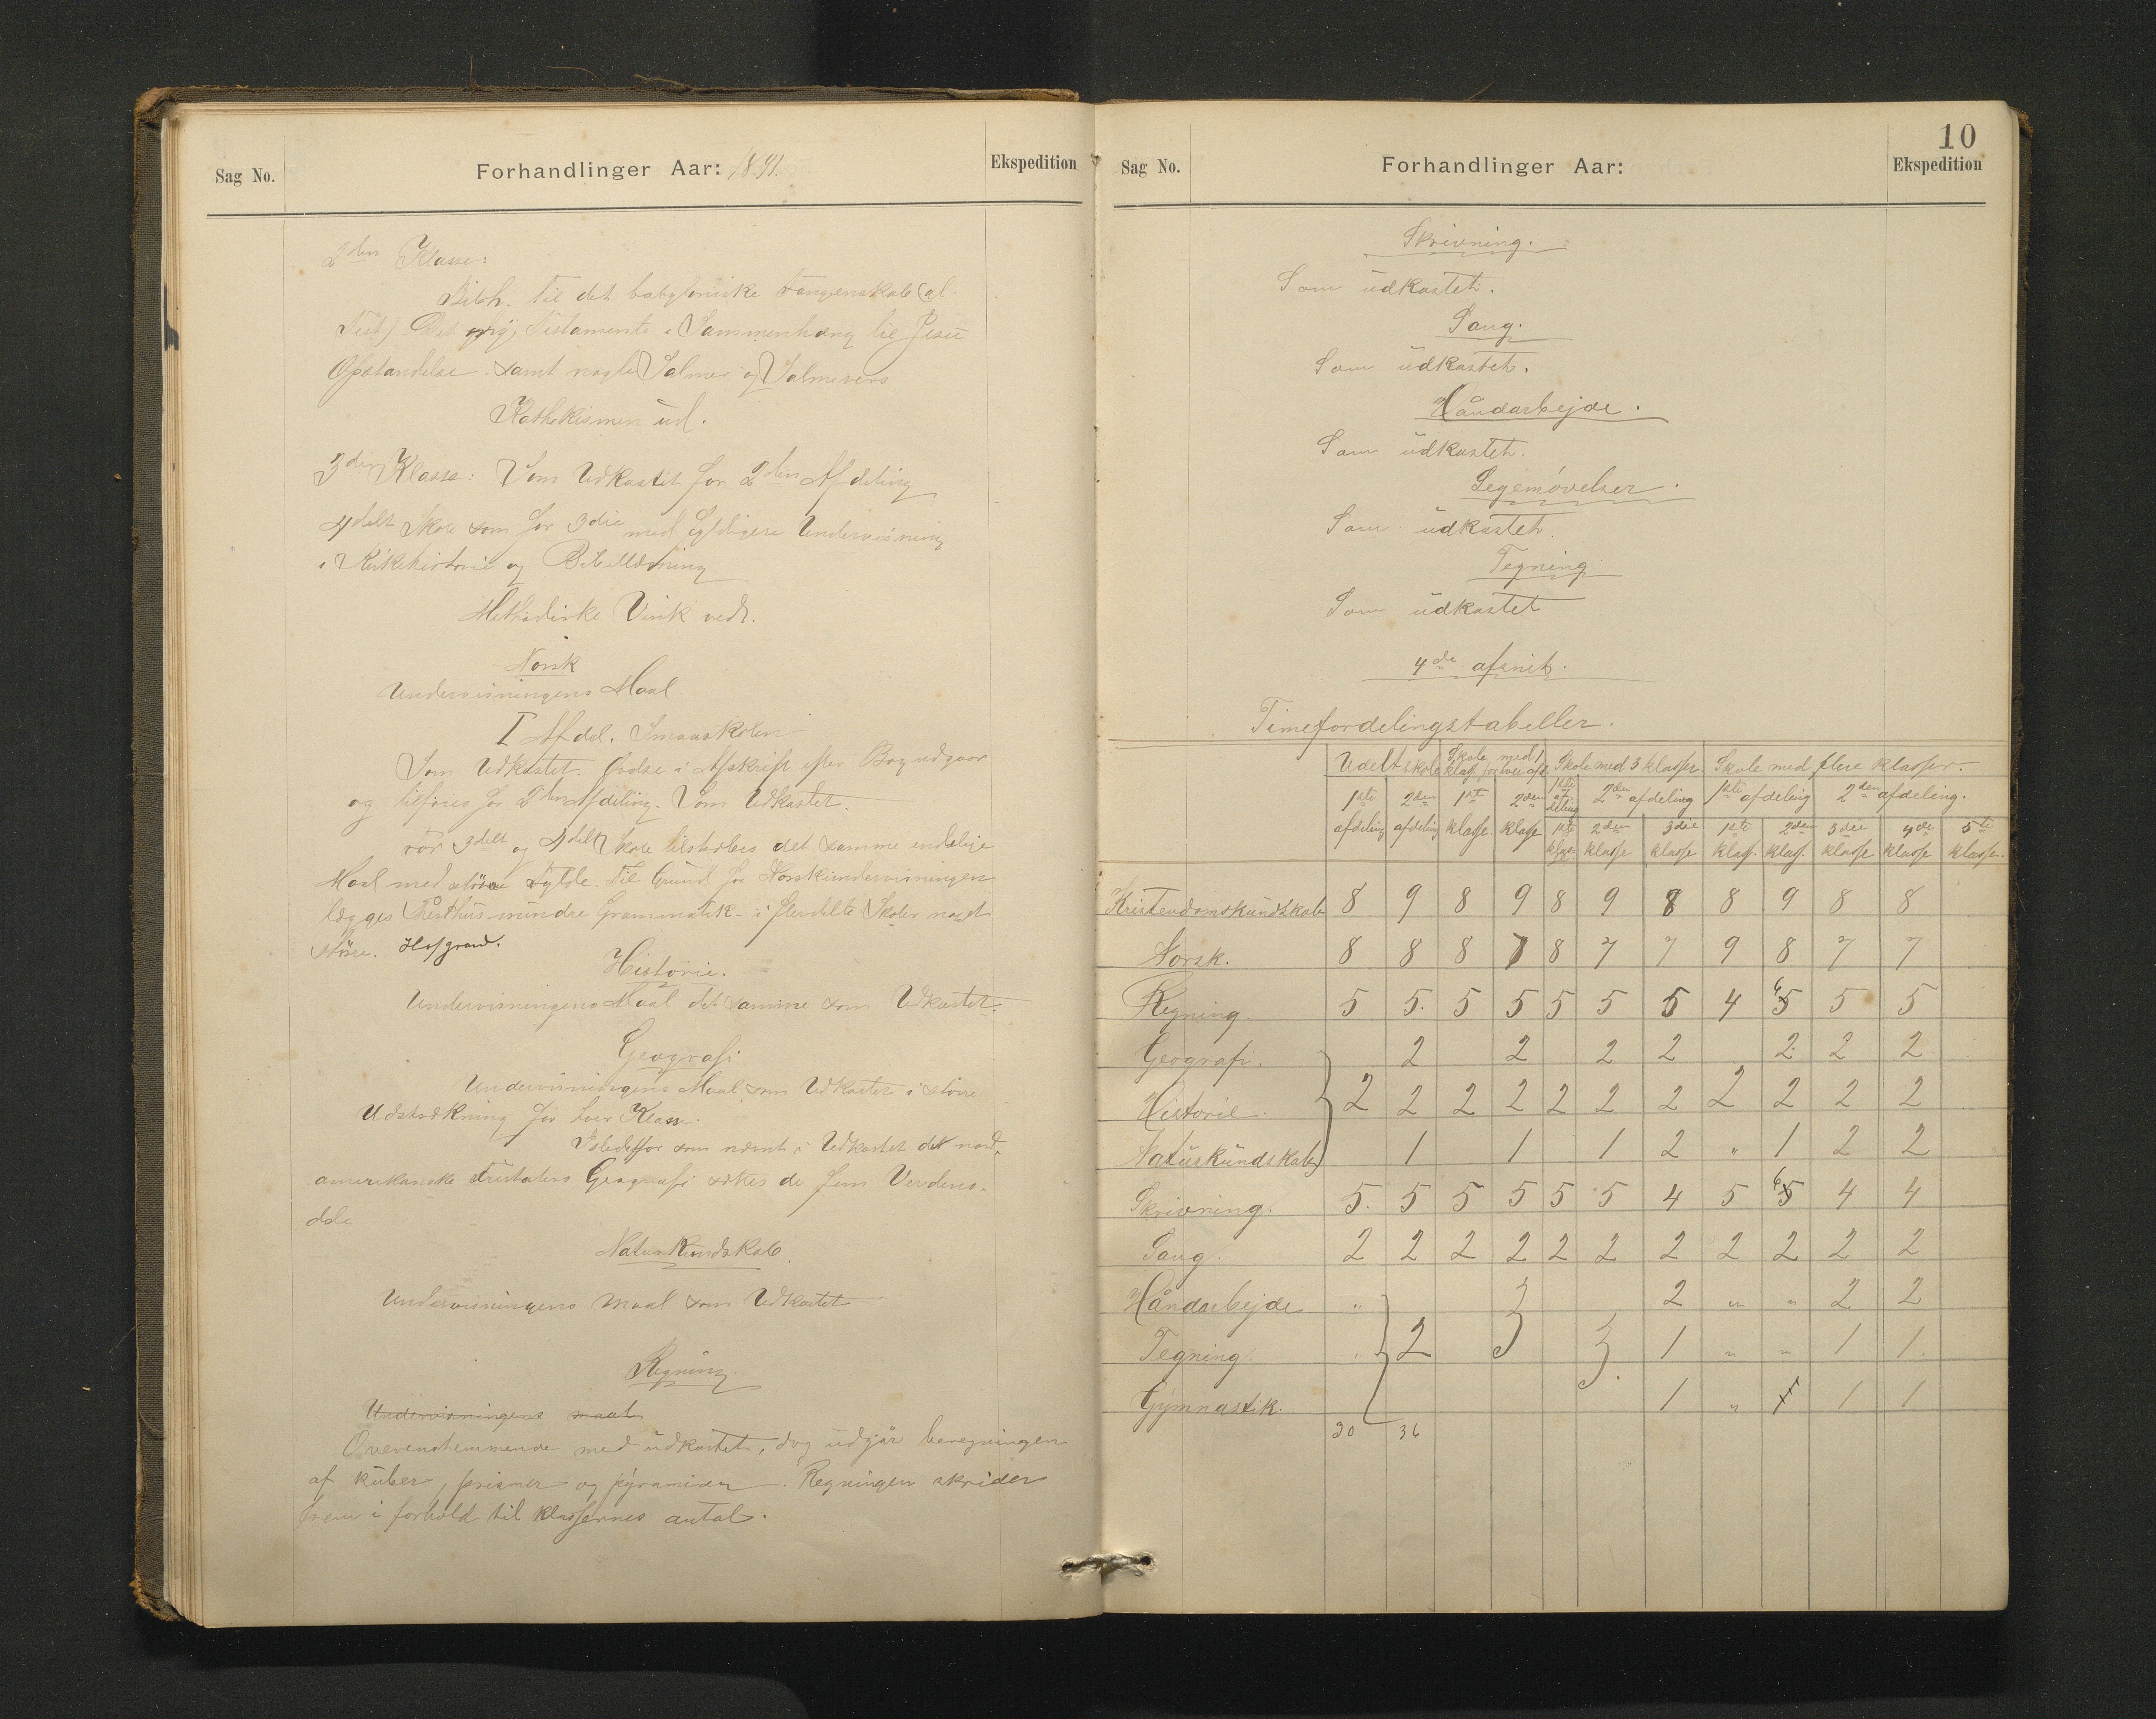 Sag No.
Forhandlinger Aar: 1891.
Ekspedition
2den Klasse:
Bibh. til det babyloniske Fangenskab (gl.
Test) Det ny Testamente i Sammenhæng til Jesu
Opstandelse samt nogle Salmer og Salmevers
Kathekismen ud.
3die Klasse: Som Udkastet for 2den Afdeling
4delt Skole som for 3die med fyldigere Undervisning
i Kirkehistorie og Bibellæsning
Methodiske Vink vedt.
Norsk
Undervisningens Maal
I Afdel. Smaaskolen
Som Udkastet. Øvelse i Afskrift efter Bog udgaar
og tilføies for 2den Afdeling. Som Udkastet.
For 3delt og 4delt Skole tilstræbes det samme endelige
Maal med større Fylde. Til Grund for Norskundervisningen
lægges mindre Grammatik - i flerdelte Skoler noget
større. Hofgrand.
Historie.
Undervisningens Maal det samme som Udkastet.
Geografi
Undervisningens Maal som Udkastet i større
Udstrækning for hver Klasse.
Istedetfor som nævnt i Udkastet det nord-
amerikanske Fristaters Geografi sættes de fem Verdens-
dele
Naturkundskab.
Undervisningens Maal som Udkastet
Regning
Undervisningens maal
Overenstemmende med udkastet, dog udgår beregningen
af kuber, prismer og pyramider. Regningen skrider
frem i forhold til klassernes antal.
10
Sag No.
Forhandlinger Aar:
Ekspedition
Skrivning.
Som udkastet.
Sang.
Som udkastet.
Håndarbejde.
Som udkastet.
Legemøvelser.
Som udkastet.
Tegning
Som udkastet
4de afsnit.
Timefordelingstabeller.
Udelt skole Skole med 1 klasse for hver afd. Skole med 3 klasser. Skole med flere klasser.
1ste afdeling 2den afdeling 1ste klasse. 2den klasse 1ste afdeling 2den afdeling 1ste afdeling 2den afdeling.
1ste klasse 2den klasse 3die klasse 1ste klass. 2den klass. 3die klasse 4de klasse 5te klasse.
Kristendomskundskab 8 9 8 9 8 9 8 8 9 8 8
Norsk. 8 8 8 7 8 7 7 9 8 7 7
Regning. 5 5. 5 5 5 5 5 4 6 5 5 5
Geografi. 2 2 2 2 2 2 2
Historie. 2 2 2 2 2 2 2 2 2 2 2
Naturkundskab 1 1 1 2 " 1 2 2
Skrivning. 5. 5 5 5 5 5 4 5 6 5 4 4
Sang. 2 2 2 2 2 2 2 2 2 2 2
Håndarbejde " 2 " " 2 2
Tegning. " 2 3 3 1 " " 1 1.
Gymnastik. 1 " 1 1 1
30 36